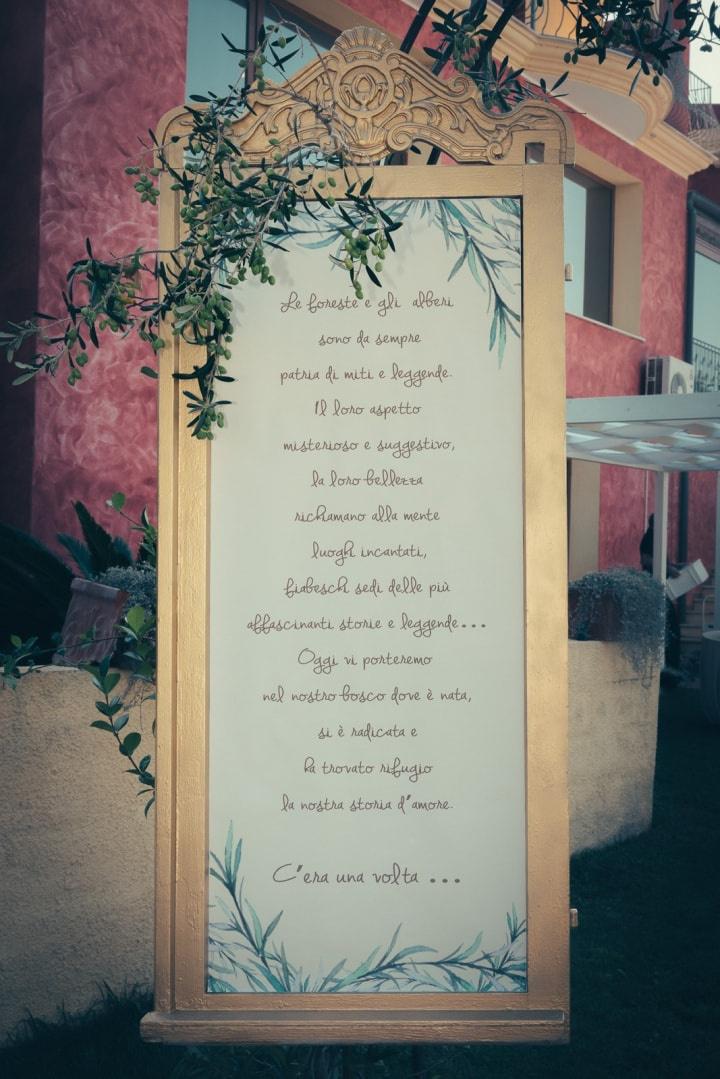 Le foreste e gli alberi
sono da sempre
patria di miti e leggende.
Il loro aspetto
misterioso e suggestivo,
la loro bellezza
richiamano alla mente
luoghi incantati,
fiabeschi sedi delle più
affascinanti storie e leggende...
Oggi vi porteremo
nel nostro bosco dove è nata,
si è radicata e
ha trovato rifugio
la nostra storia d'amore.
C'era una volta ...